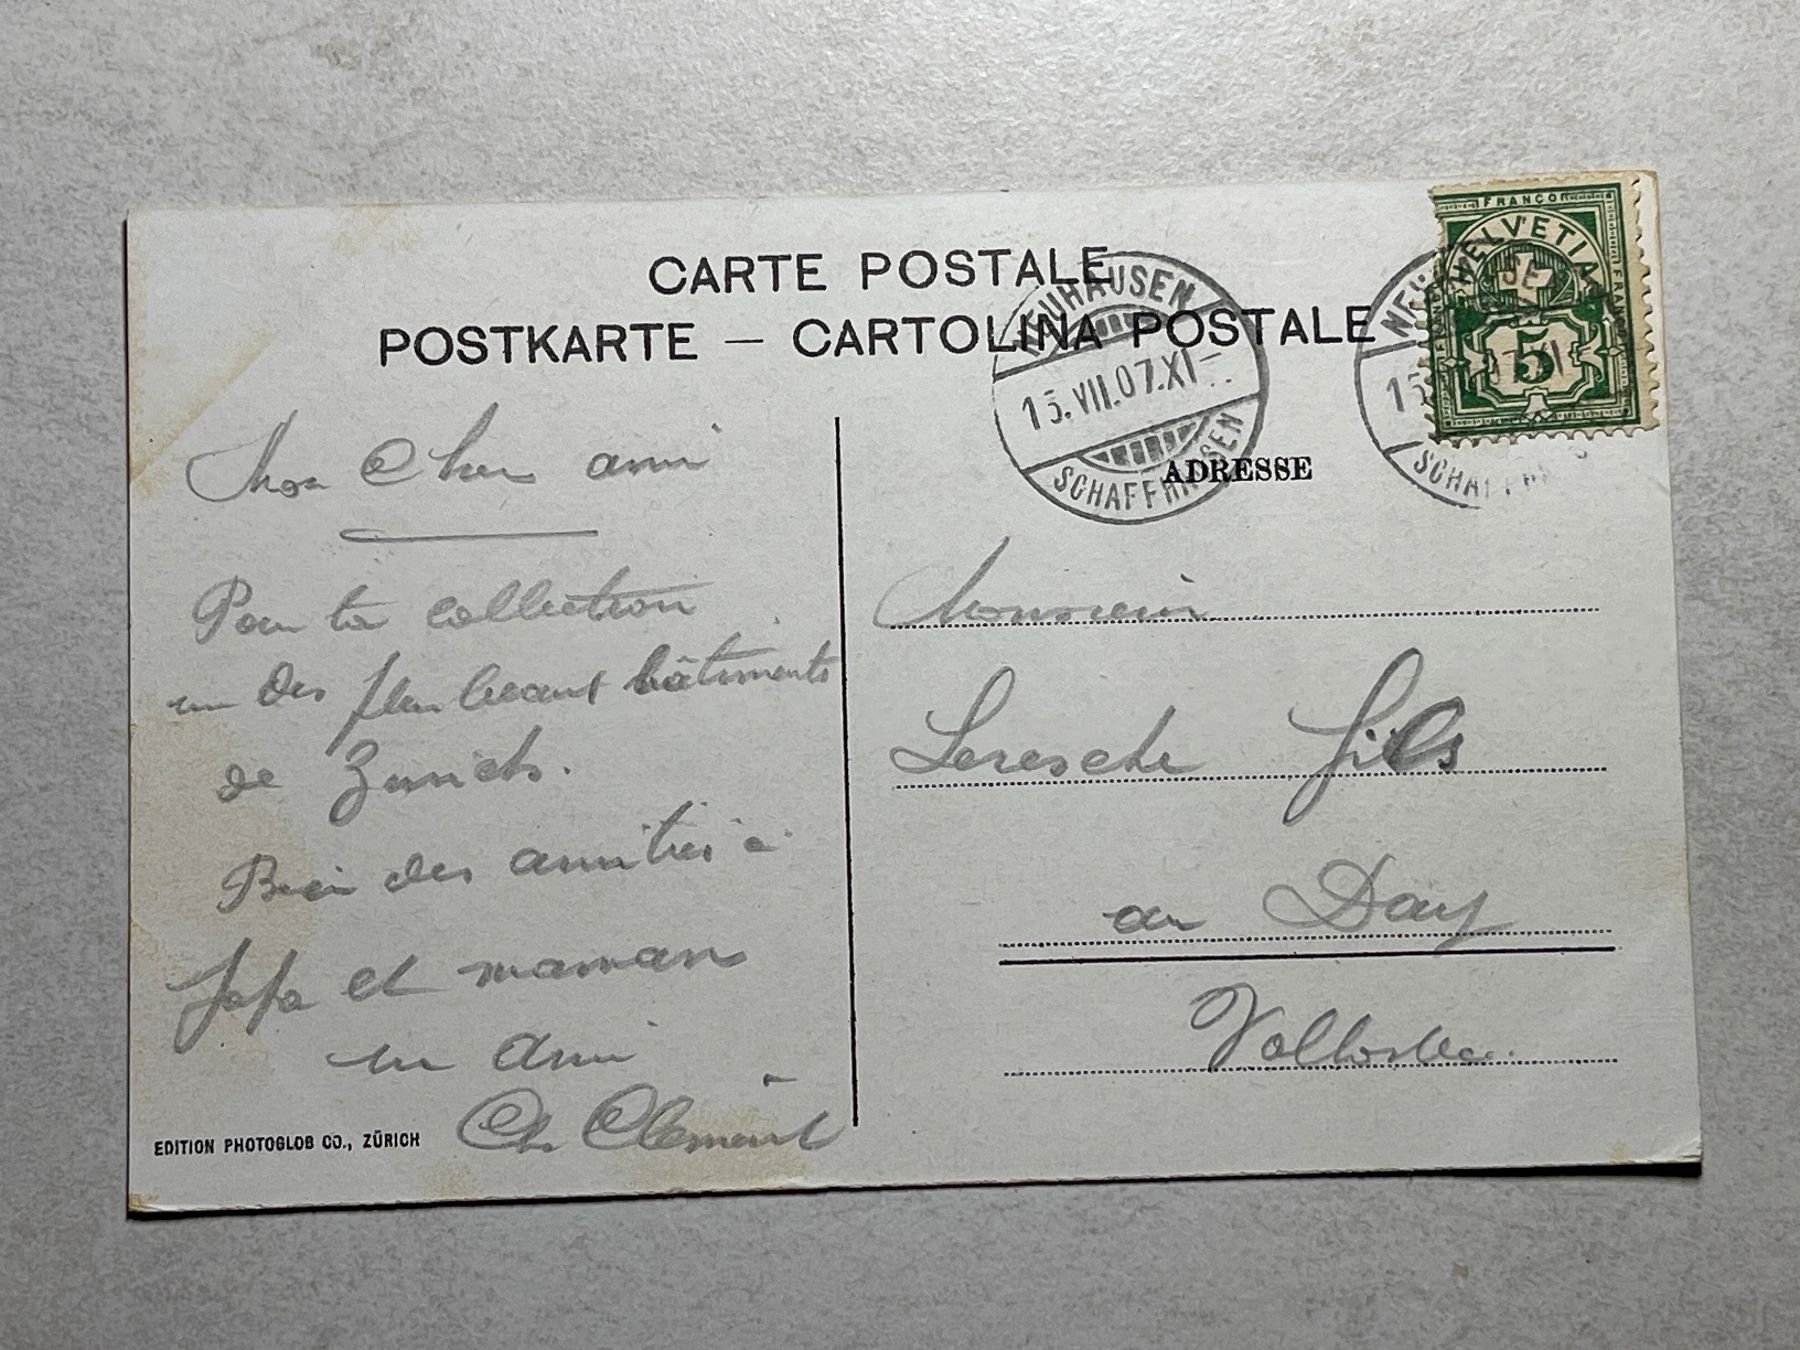 CARTE POSTALE
POSTKARTE — CARTOLINA POSTALE
FRANCO
HELVETIA
FRANCO
FRANCO
5
NEUHAUSEN
15.VII.07.XI-
SCHAFFHAUSEN
15
SCHAFFHAUS
ADRESSE
Mon Cher ami
Pour ta collection
un des plus beaux bâtiments
de Zurich.
Bien des amitiés à
papa et maman
un ami
Ch. Clément
EDITION PHOTOGLOB CO., ZÜRICH
Monsieur
Leresche fils
au Day
Vallorbes.